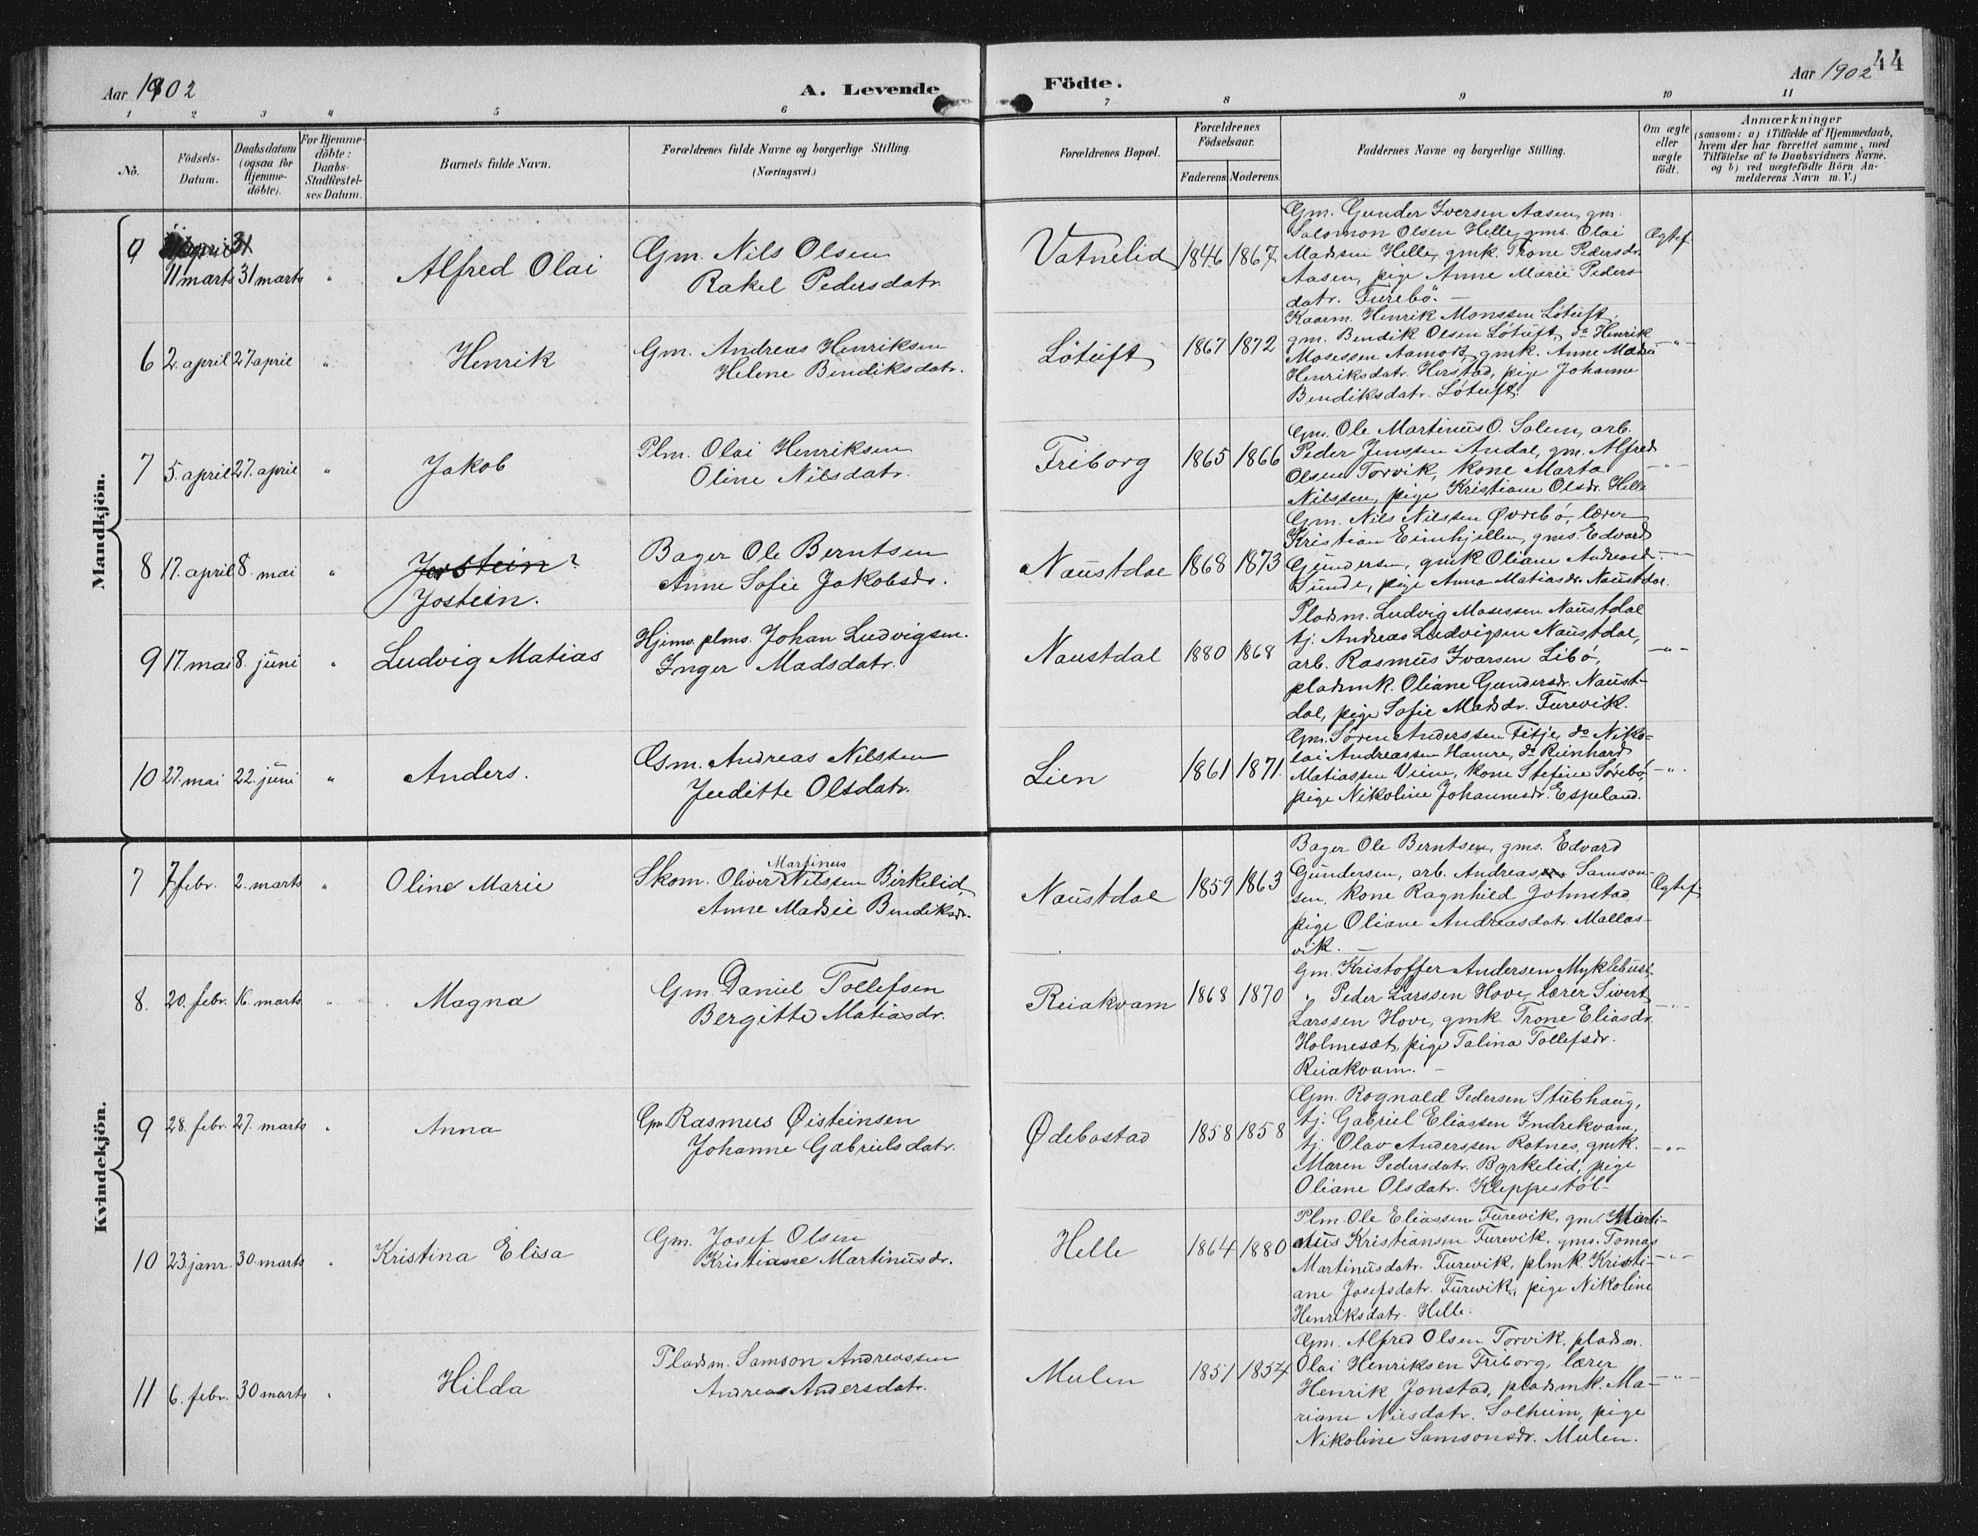 Aar 1902
A. Levende
Födte.
Aar 1902
44
1 2 3 4 5 6 7 8 9 10 11
No.
Födsels-
Datum.
Daabsdatum
(ogsaa for
Hjemme-
döbte).
For Hjemme-
döbte:
Daabs-
Stadfæstel-
ses Datum.
Barnets fulde Navn.
Forældrenes fulde Navne og borgerlige Stilling
(Næringsvei.)
Forældrenes Bopæl.
Forældrenes
Födselsaar.
Faderens Moderens
Faddernes Navne og borgerlige Stilling.
Om ægte
eller
uægte
født.
Anmærkninger
(saasom: a) i Tilfælde af Hjemmedaab,
hvem der har forrettet samme, med
Tilföielse af to Daabsvidners Navne.
og b) ved uægtefödte Börn An-
melderens Navn m. V.)
Mandkjön.
9
april 31
11 marts 31 marts "
Alfred Olai
Gm. Nils Olsen
Rakel Pedersdatr.
Vatnelid 1846 1867
Gm. Gunder Iversen Aasen, gm.
Salomon Olsen Helle, gms. Olai
Madsen Helle, gmk. Trone Pedersdr.
Aasen, pige Anne Marie Peders
datr. Furebö. –
Ægtef.
6 2. april 27 april "
Henrik
Gm. Andreas Henriksen
Helene Bendiksdatr.
Løtuft 1867 1872
Kaarm. Henrik Monssen Løtuft,
gm. Bendik Olsen Løtuft, do Henrik
Mosessen Aamot, gmk. Anne Madsii
Henriksdatr. Herstad, pige Johanne
Bendiksdatr. Løtuft.
– " –
7 5. april 27. april "
Jakob
Plm. Olai Henriksen
Oline Nilsdatr.
Friborg 1865 1866
Gm. Ole Martinus O. Solem, arb.
Peder Jenssen Andal, gm. Alfred
Olsen Torvik, kone Marta
Nilssen, pige Kristiane Olsdr. Helle
– " –
8 17. april 8. mai "
Jostein ?
Jostein.
Bager Ole Berntsen
Anne Sofie Jakobsdr.
Naustdal 1868 1873
Gm. Nils Nilssen Øvrebö, lærer
Kristian Eimhjellen, gms. Edvard
Gundersen, gmk Oliane Andreasd.
Sunde, pige Anna Matiasdr. Naustdal.
– " –
9 17. mai 8. juni "
Ludvig Matias
Hjmv. plms. Johan Ludvigsen.
Inger Madsdatr.
Naustdal 1880 1868
Pladsm. Ludvig Mosessen Naustdal
tj. Andreas Ludvigsen Naustdal,
arb. Rasmus Ivarsen Libö,
pladsmk. Oliane Gundersdr. Naust-
dal, pige Sofie Madsdr. Furevik.
– " –
10 27. mai 22. juni "
Anders.
Gsm. Andreas Nilssen
Juditte Olsdatr.
Lien 1861 1871.
Gm. Søren Anderssen Fitje, do Niko-
lai Andreassen Hamre, do Reinhard
Matiassen Viine, kone Stefine Sørebö,
pige Nikoline Johannesdr. Espeland.
– " –
Kvindekjön.
7 7 febr. 2. marts "
Oline Marie
Martinus
Skom. Oliver Nilssen Birkelid,
Anne Madsie Bendiksdr.
Naustdal 1859 1863
Bager Ole Berntsen, gms. Edvard
Gundersen, arb. Andreas Samson-
sen, kone Ragnhild Johnstad
pige Oliane Andreasdatr. Mallas-
vik. –
Ægtef.
8. 20. febr. 16 marts "
Magna
Gm. Daniel Tollefsen
Bergitte Matiasdr.
Reiakvam 1868 1870
Gm. Kristoffer Andersen Myklebust
" Peder Larssen Hove, lærer Sivert
Larssen Hove, gmk. Trone Eliasdr.
Holmesæt, pige Talina Tollefsdr.
Reiakvam. –
– " –
9 28. febr. 27. marts "
Anna
Gm. Rasmus Øisteinsen
Johanne Gabrielsdatr.
Ødebostad 1858 1858
Gm. Rognald Pedersen Stubhaug,
tj. Gabriel Eliassen Indrekvam,
tj. Olav Anderssen Rotnes, gmk.
Maren Pedersdatr. Byrkelid, pige
Oliane Olsdatr. Kleppestöl –
– " –
10 23 janr. 30 marts "
Kristina Elisa
Gm. Josef Olsen
Kristiane Martinusdr.
Helle 1864 1880
Plm. Ole Eliassen Furevik, gm. Marti-
nus Kristiansen Furevik, gms. Tomas
Martinusdatr. Furevik, plmk. Kristi-
ane Josefsdatr. Furevik, pige Nikoline
Henriksdatr. Helle.
– " –
11 6. febr. 30 marts "
Hilda
Pladsm. Samson Andreassen
Andrea Andersdatr.
Mulen 1851 1854
Gm. Alfred Olsen Torvik, pladsm.
Olai Henriksen Friborg, lærer
Henrik Jonstad, pladsmk. Ma-
riane Nilsdatr. Solheim, pige
Nikoline Samsonsdr. Mulen.
– " –